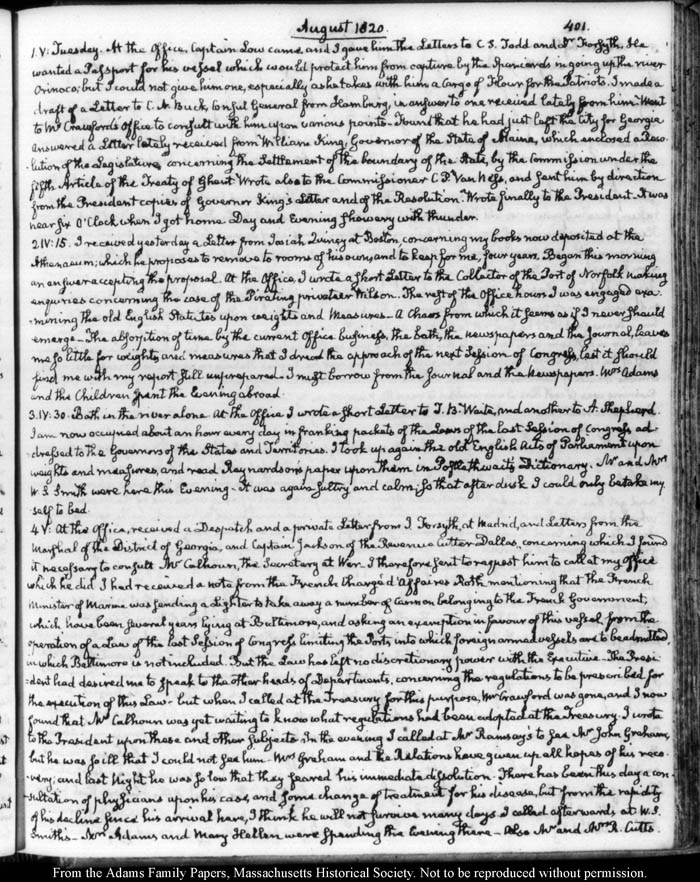 August 1820.
401.
1. V: Tuesday. At the Office, Captain Low came, and I gave him the Letters to C. S. Todd and Dr Forsyth. He
wanted a Passport for his vessel which would protect him from capture by the Spaniards in going up the river
Orinoco; but I could not give him one, especially as he takes with him a Cargo of Flour for the Patriots. I made a
draft of a Letter to C. N. Buck, Consul General from Hamburg, in answer to one received lately from him. Went
to Mr Crawford's Office to consult with him upon various points. Found that he had just left the City for Georgia
answered a Letter lately received from William King, Governor of the State of Maine, which enclosed a Reso-
-lution of the Legislature, concerning the Settlement of the boundary of the State, by the Commission under the
fifth Article of the Treaty of Ghent. Wrote also to the Commissioner C. P. Van Ness, and sent him by direction
from the President copies of Governor King's Letter and of the Resolution. Wrote finally to the President. It was
near six O'Clock when I got home. Day and Evening showery with thunder.
2. IV: 15. I received yesterday a Letter from Josiah Quincy at Boston, concerning my books now deposited at the
Athenaeum; which he proposes to remove to rooms of his own, and to keep for me, four years. Began this morning
an answer accepting the proposal. At the Office, I wrote a short Letter to the Collector of the Port of Norfolk making
enquiries concerning the case of the Pirating privateer Wilson. The rest of the Office hours I was engaged exa-
-mining the old English Statutes upon weights and Measures—A Chaos from which it seems as if I never should
emerge—The absorption of time by the current Office business, the bath, the newspapers and the Journal, leaves
me so little for weights and measures that I dread the approach of the next Session of Congress, lest it should
find me with my report still unprepared. I must borrow from the Journal and the Newspapers. Mrs Adams
and the Children spent the Evening abroad.
3. IV: 30. Bath in the river alone. At the Office I wrote a short Letter to T. B. Waite, and another to A. Shepherd.
I am now occupied about an hour every day in franking packets of the Laws of the last Session of Congress ad-
-dressed to the Governors of the States and Territories. I took up again the old English Acts of Parliament upon
weights and measures, and read Raynardson's paper upon them in Postlethwait's Dictionary. Mr and Mrs
W. S. Smith were here this Evening. It was again sultry and calm; so that after dusk I could only betake my
self to bed.
4. V: At the Office, received a Despatch and a private Letter from J. Forsyth, at Madrid, and Letters from the
Marshal of the District of Georgia, and Captain Jackson of the Revenue Cutter Dallas, concerning which I found
it necessary to consult Mr Calhoun, the Secretary at War. I therefore sent to request him to call at my Office
which he did. I had received a note from the French Chargé d'Affaires Roth mentioning that the French
Minister of Marine was sending a Lighter to take away a number of Cannon belonging to the French Government,
which have been several years lying at Baltimore, and asking an exemption in favour of this vessel from the
operation of a Law of the last Session of Congress limiting the Ports, into which foreign armed vessels are to be admitted,
in which Baltimore is not included. But the Law has left no discretionary power with the Executive. The Presi-
-dent had desired me to speak to the other heads of Departments, concerning the regulations to be prescribed for
the execution of this Law. but when I called at the Treasury for this purpose, Mr Crawford was gone, and I now
found that Mr Calhoun was yet waiting to know what regulations had been adopted at the Treasury. I wrote
to the President upon these and other subjects. In the evening I called at Mr Ramsay's to see Mr John Graham,
but he was so ill that I could not see him. Mrs Graham and the Relations have given up all hopes of his reco-
-very; and last Night he was so low that they feared his immediate dissolution. There has been this day a con-
-sultation of physicians upon his case, and some change of treatment for his disease, but from the rapidity
of his decline since his arrival here, I think he will not survive many days. I called afterwards at W. S.
Smiths—Mrs Adams and Mary Hellen were spending the Evening there—Also Mr and Mrs R. Cutts.
From the Adams Family Papers, Massachusetts Historical Society. Not to be reproduced without permission.